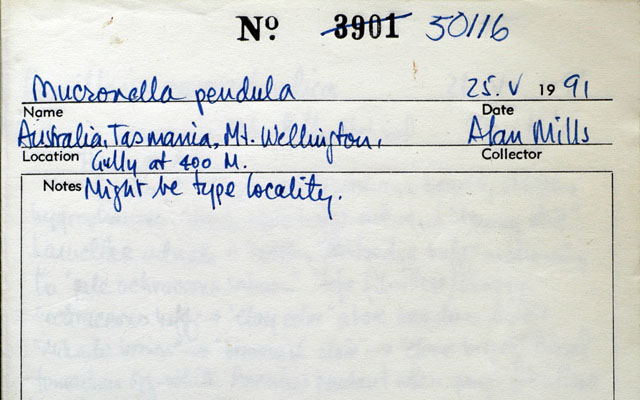 Nº. 3901 50116
Mucronella pendula 25.V 1991
Name Date
Australia, Tasmania, Mt. Wellington, Alan Mills
Location Gully at 400 M. Collector
Notes Might be type locality.